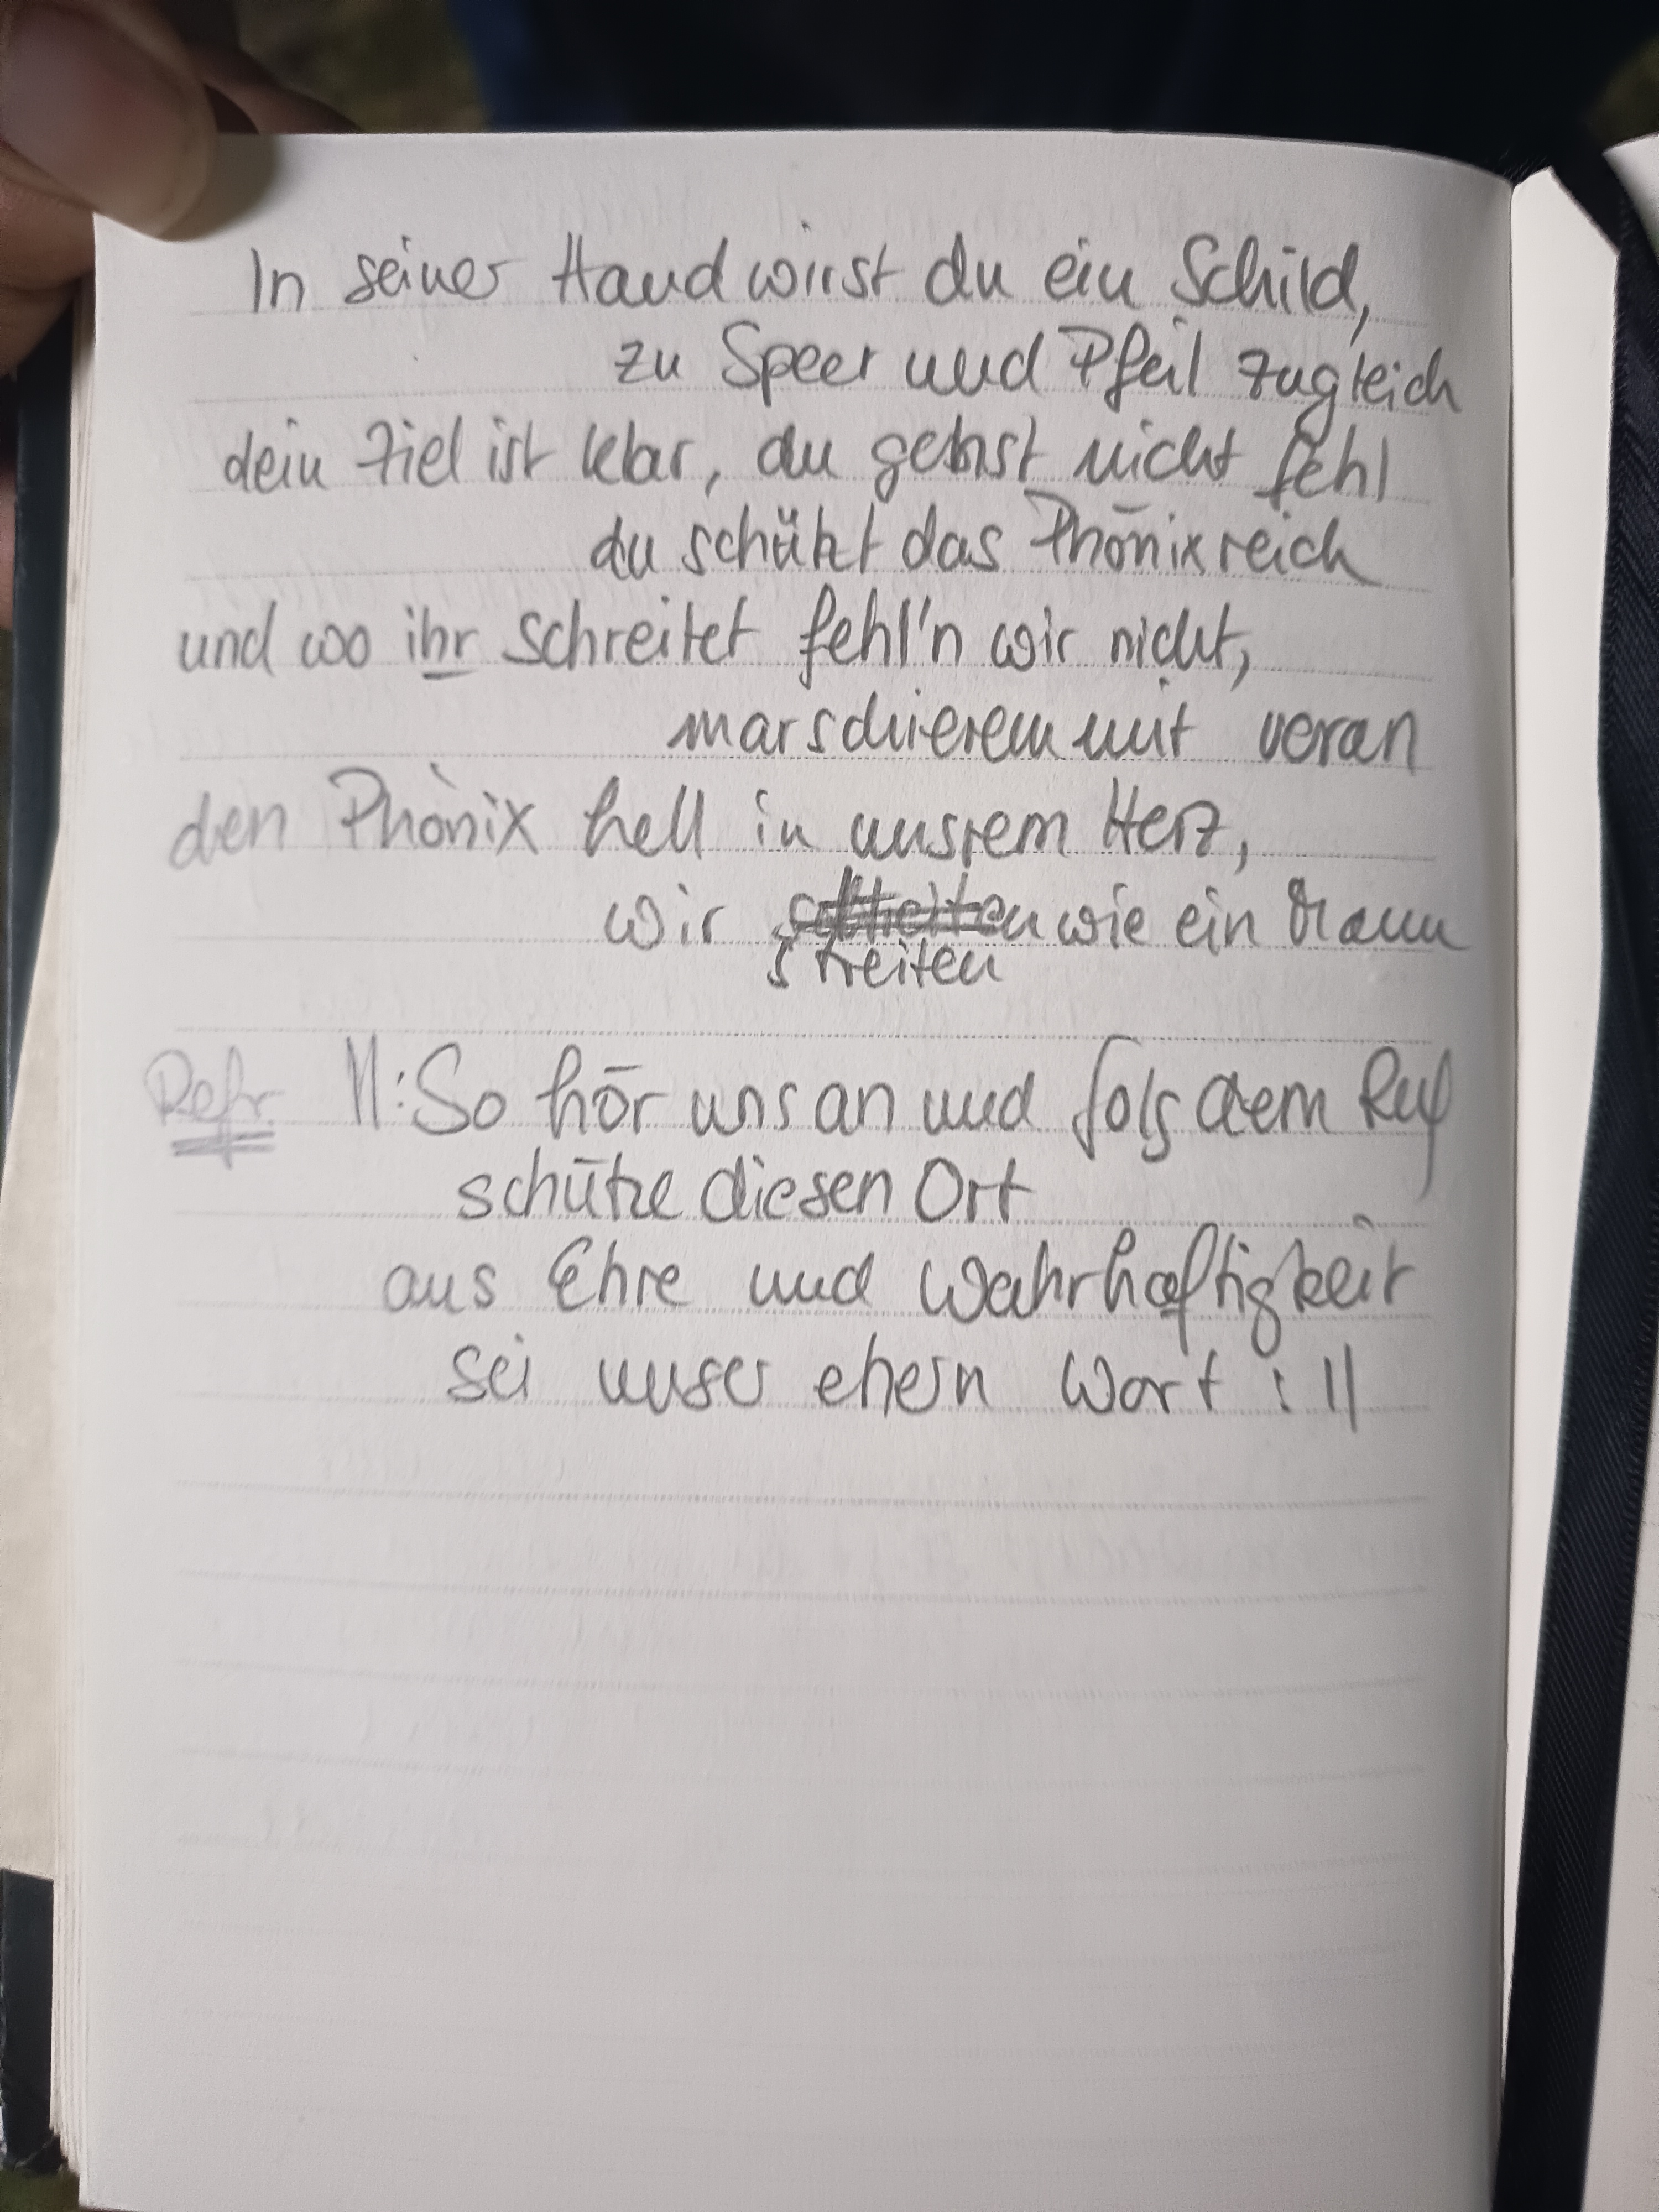 In seiner Hand wirst du ein Schild,
zu Speer und Pfeil zugleich
dein Ziel ist klar, du gehst nicht fehl
du schützt das Phönixreich
und wo ihr schreitet fehl'n wir nicht,
marschieren mit voran
den Phönix hell in unsrem Herz,
wir wie ein Mann
streiten
Refr. ||: So hör uns an und folg dem Ruf
schütze diesen Ort
aus Ehre und Wahrhaftigkeit
sei unser ehern Wort :||